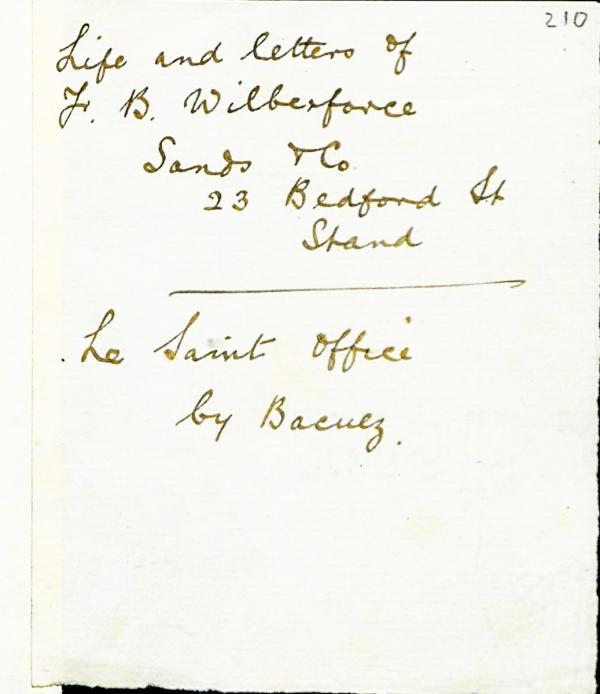 210
Life and letters of
Fr. B. Wilberforce
Sands & Co
23 Bedford St
Strand
Le Saint Office
by Bacuez.